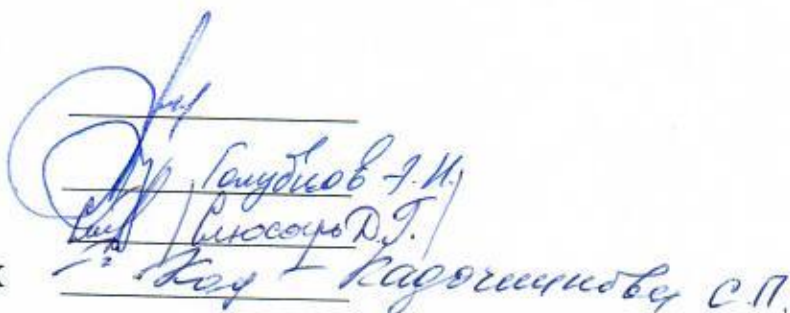 Голубцов А.И.
Слюсарь Д.Г.
к Кад - Кадочникова С.П.